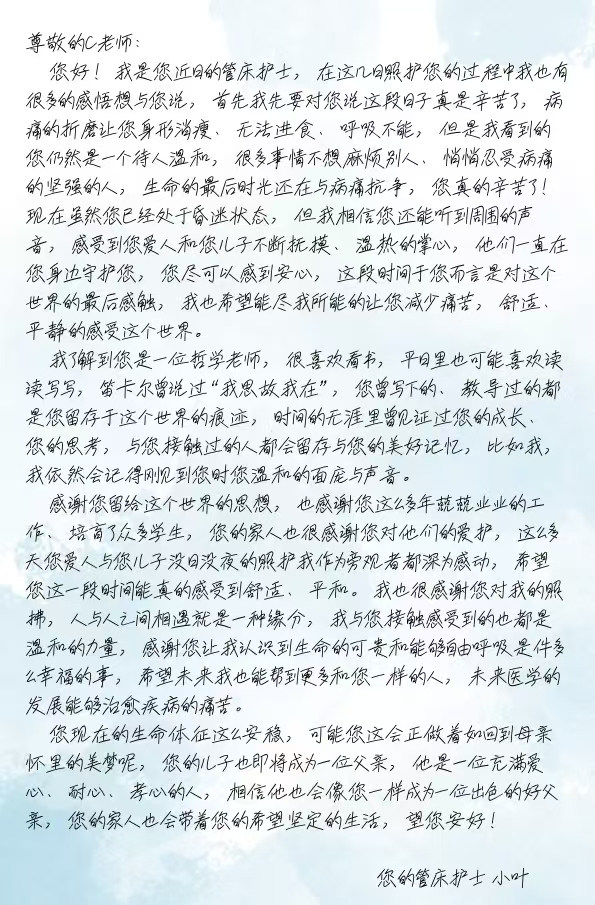 尊敬的C老师：
您好！我是您近日的管床护士，在这几日照护您的过程中我也有
很多的感悟想与您说，首先我先要对您说这段日子真是辛苦了，病
痛的折磨让您身形消瘦、无法进食、呼吸不能，但是我看到的
您仍然是一个待人温和，很多事情不想麻烦别人、悄悄忍受病痛
的坚强的人，生命的最后时光还在与病痛抗争，您真的辛苦了！
现在虽然您已经处于昏迷状态，但我相信您还能听到周围的声
音，感受到您爱人和您儿子不断抚摸、温热的掌心，他们一直在
您身边守护您，您尽可以感到安心，这段时间于您而言是对这个
世界的最后感触，我也希望能尽我所能的让您减少痛苦，舒适、
平静的感受这个世界。
我了解到您是一位哲学老师，很喜欢看书，平日里也可能喜欢读
读写写，笛卡尔曾说过“我思故我在”，您曾写下的、教导过的都
是您留存于这个世界的痕迹，时间的无涯里曾见证过您的成长、
您的思考，与您接触过的人都会留存与您的美好记忆，比如我，
我依然会记得刚见到您时您温和的面庞与声音。
感谢您留给这个世界的思想，也感谢您这么多年兢兢业业的工
作、培育了众多学生，您的家人也很感谢您对他们的爱护，这么多
天您爱人与您儿子没日没夜的照护我作为旁观者都深为感动，希望
您这一段时间能真的感受到舒适、平和。我也很感谢您对我的照
拂，人与人之间相遇就是一种缘分，我与您接触感受到的也都是
温和的力量，感谢您让我认识到生命的可贵和能够自由呼吸是件多
么幸福的事，希望未来我也能帮到更多和您一样的人，未来医学的
发展能够治愈疾病的痛苦。
您现在的生命体征这么安稳，可能您这会正做着如回到母亲
怀里的美梦呢，您的儿子也即将成为一位父亲，他是一位充满爱
心、耐心、孝心的人，相信他也会像您一样成为一位出色的好父
亲，您的家人也会带着您的希望坚定的生活，望您安好！
您的管床护士 小叶